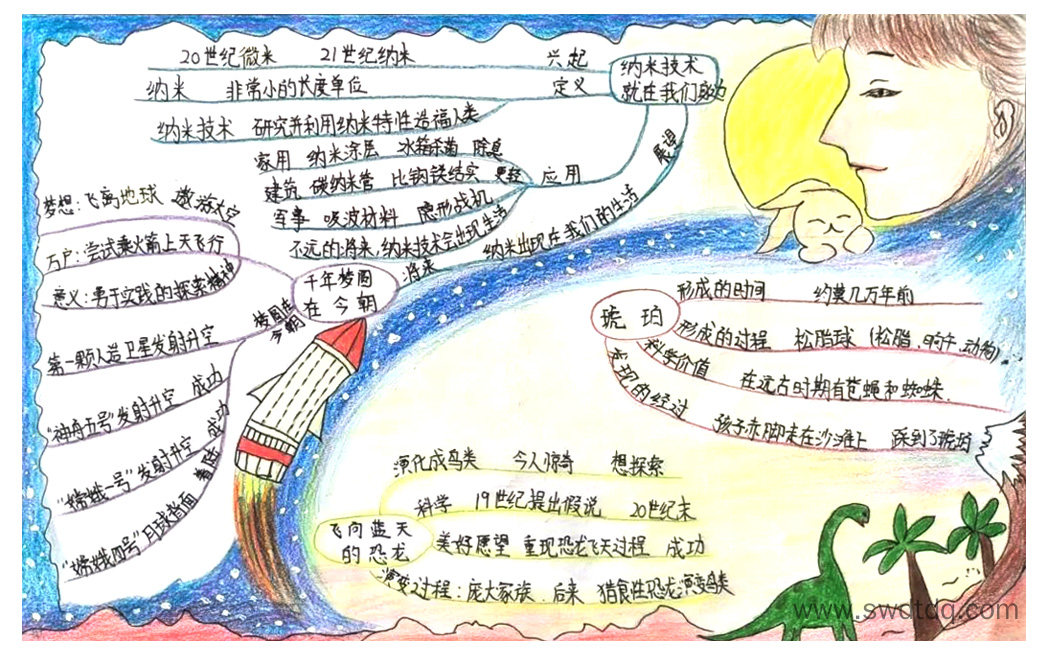 20世纪微米 21世纪纳米 兴起
纳米 非常小的长度单位 定义
纳米技术 研究并利用纳米特性造福人类
纳米技术
就在我们身边
家用 纳米涂层 冰箱杀菌 除臭
建筑 碳纳米管 比钢铁结实 更轻
军事 吸波材料 隐形战机
应用
不远的将来,纳米技术会出现生活
将来 纳米出现在我们的生活
展望
梦想:飞离地球 遨游太空
万户:尝试乘火箭上天飞行
意义:勇于实践的探索精神
千年梦圆
在今朝
梦圆在
今朝
第一颗人造卫星发射升空
"神舟五号"发射升空 成功
"嫦娥一号"发射升空 成功
"嫦娥四号"月球背面 着陆
琥珀
形成的时间 约莫几万年前
形成的过程 松脂球(松脂、晌午、动物)
科学价值 在远古时期有苍蝇和蜘蛛.
发现的经过 孩子赤脚走在沙滩上 踩到了琥珀
飞向蓝天
的恐龙
演化成鸟类 令人惊奇 想探索
科学 19世纪提出假说 20世纪末
美好愿望 重现恐龙飞天过程 成功
演变过程:庞大家族.后来 猎食性恐龙演变鸟类
www.swdtdq.com